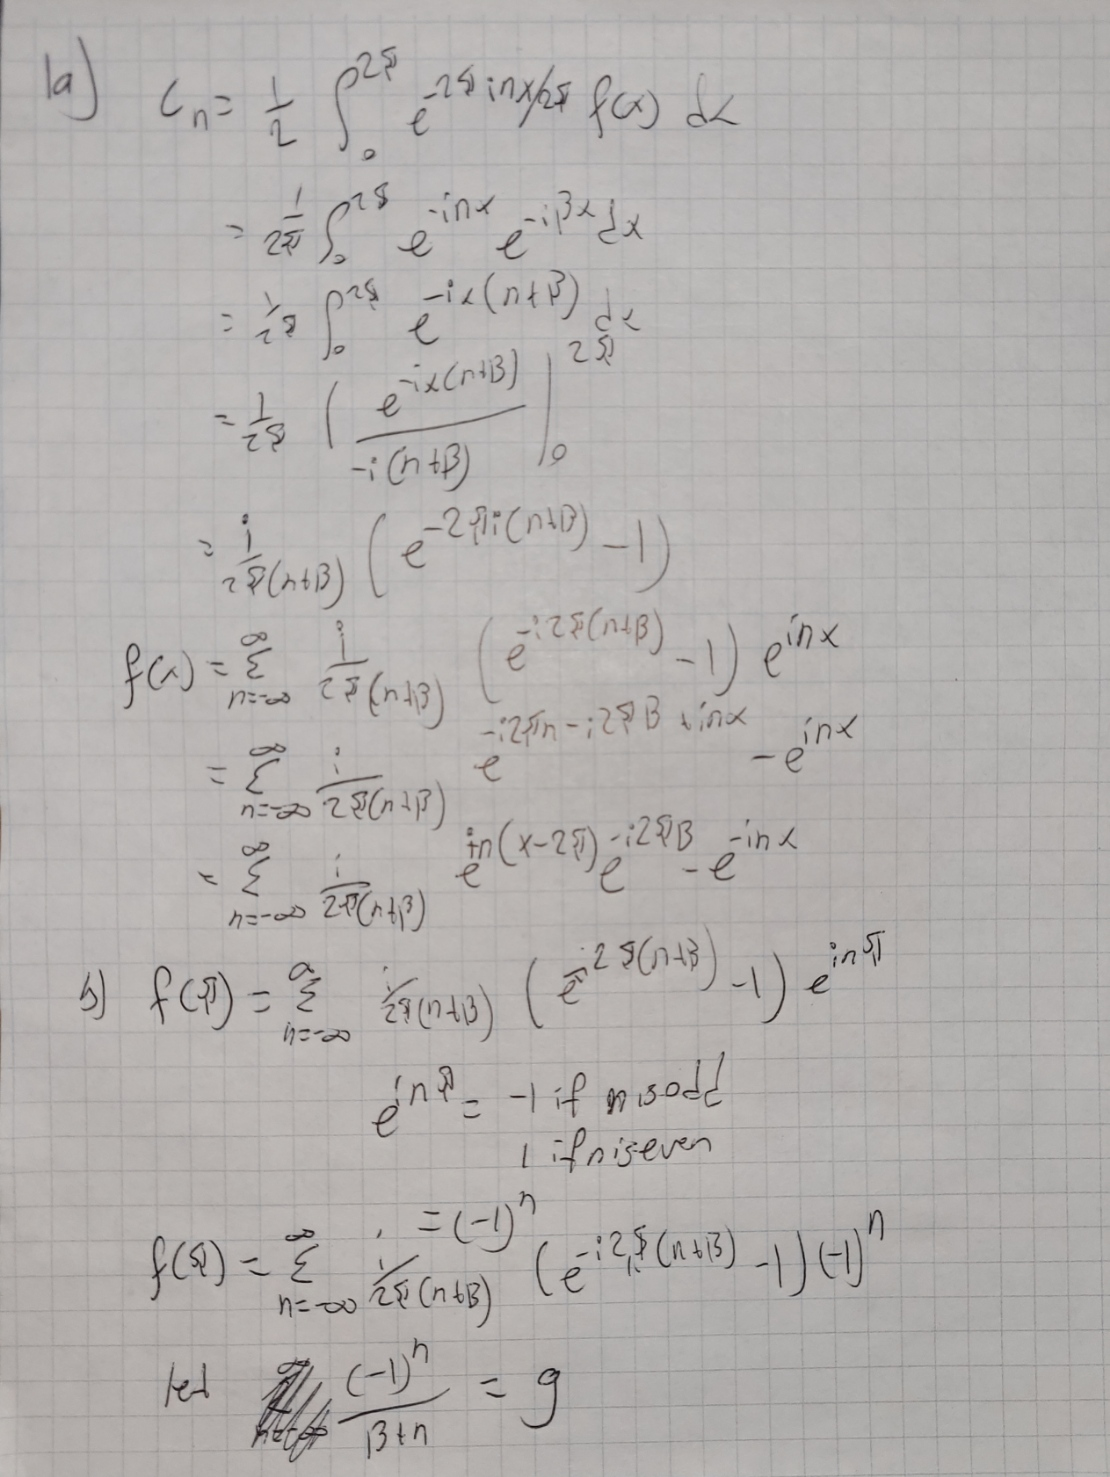 1a) Cn = 1/2 ∫₀^2π e^-2πinx/2π f(x) dx
= 1/2π ∫₀^2π e^-inx e^-iβx dx
= 1/2π ∫₀^2π e^-ix(n+β) dx
= 1/2π ( e^-ix(n+β) / -i(n+β) |₀^2π
= i/2π(n+β) ( e^-2πi(n+β) - 1 )
f(x) = Σ_{n=-∞}^∞ i/2π(n+β) ( e^-i2π(n+β) - 1 ) e^inx
= Σ_{n=-∞}^∞ i/2π(n+β) e^-i2πn-i2πβ+inx - e^inx
= Σ_{n=-∞}^∞ i/2π(n+β) e^in(x-2π) e^-i2πβ - e^-inx
b) f(π) = Σ_{n=-∞}^∞ i/2π(n+β) ( e^-i2π(n+β) - 1 ) e^inπ
e^inπ = -1 if n is odd
1 if n is even
= (-1)^n
f(π) = Σ_{n=-∞}^∞ i/2π(n+β) ( e^-i2π(n+β) - 1 ) (-1)^n
let (-1)^n / β+n = g